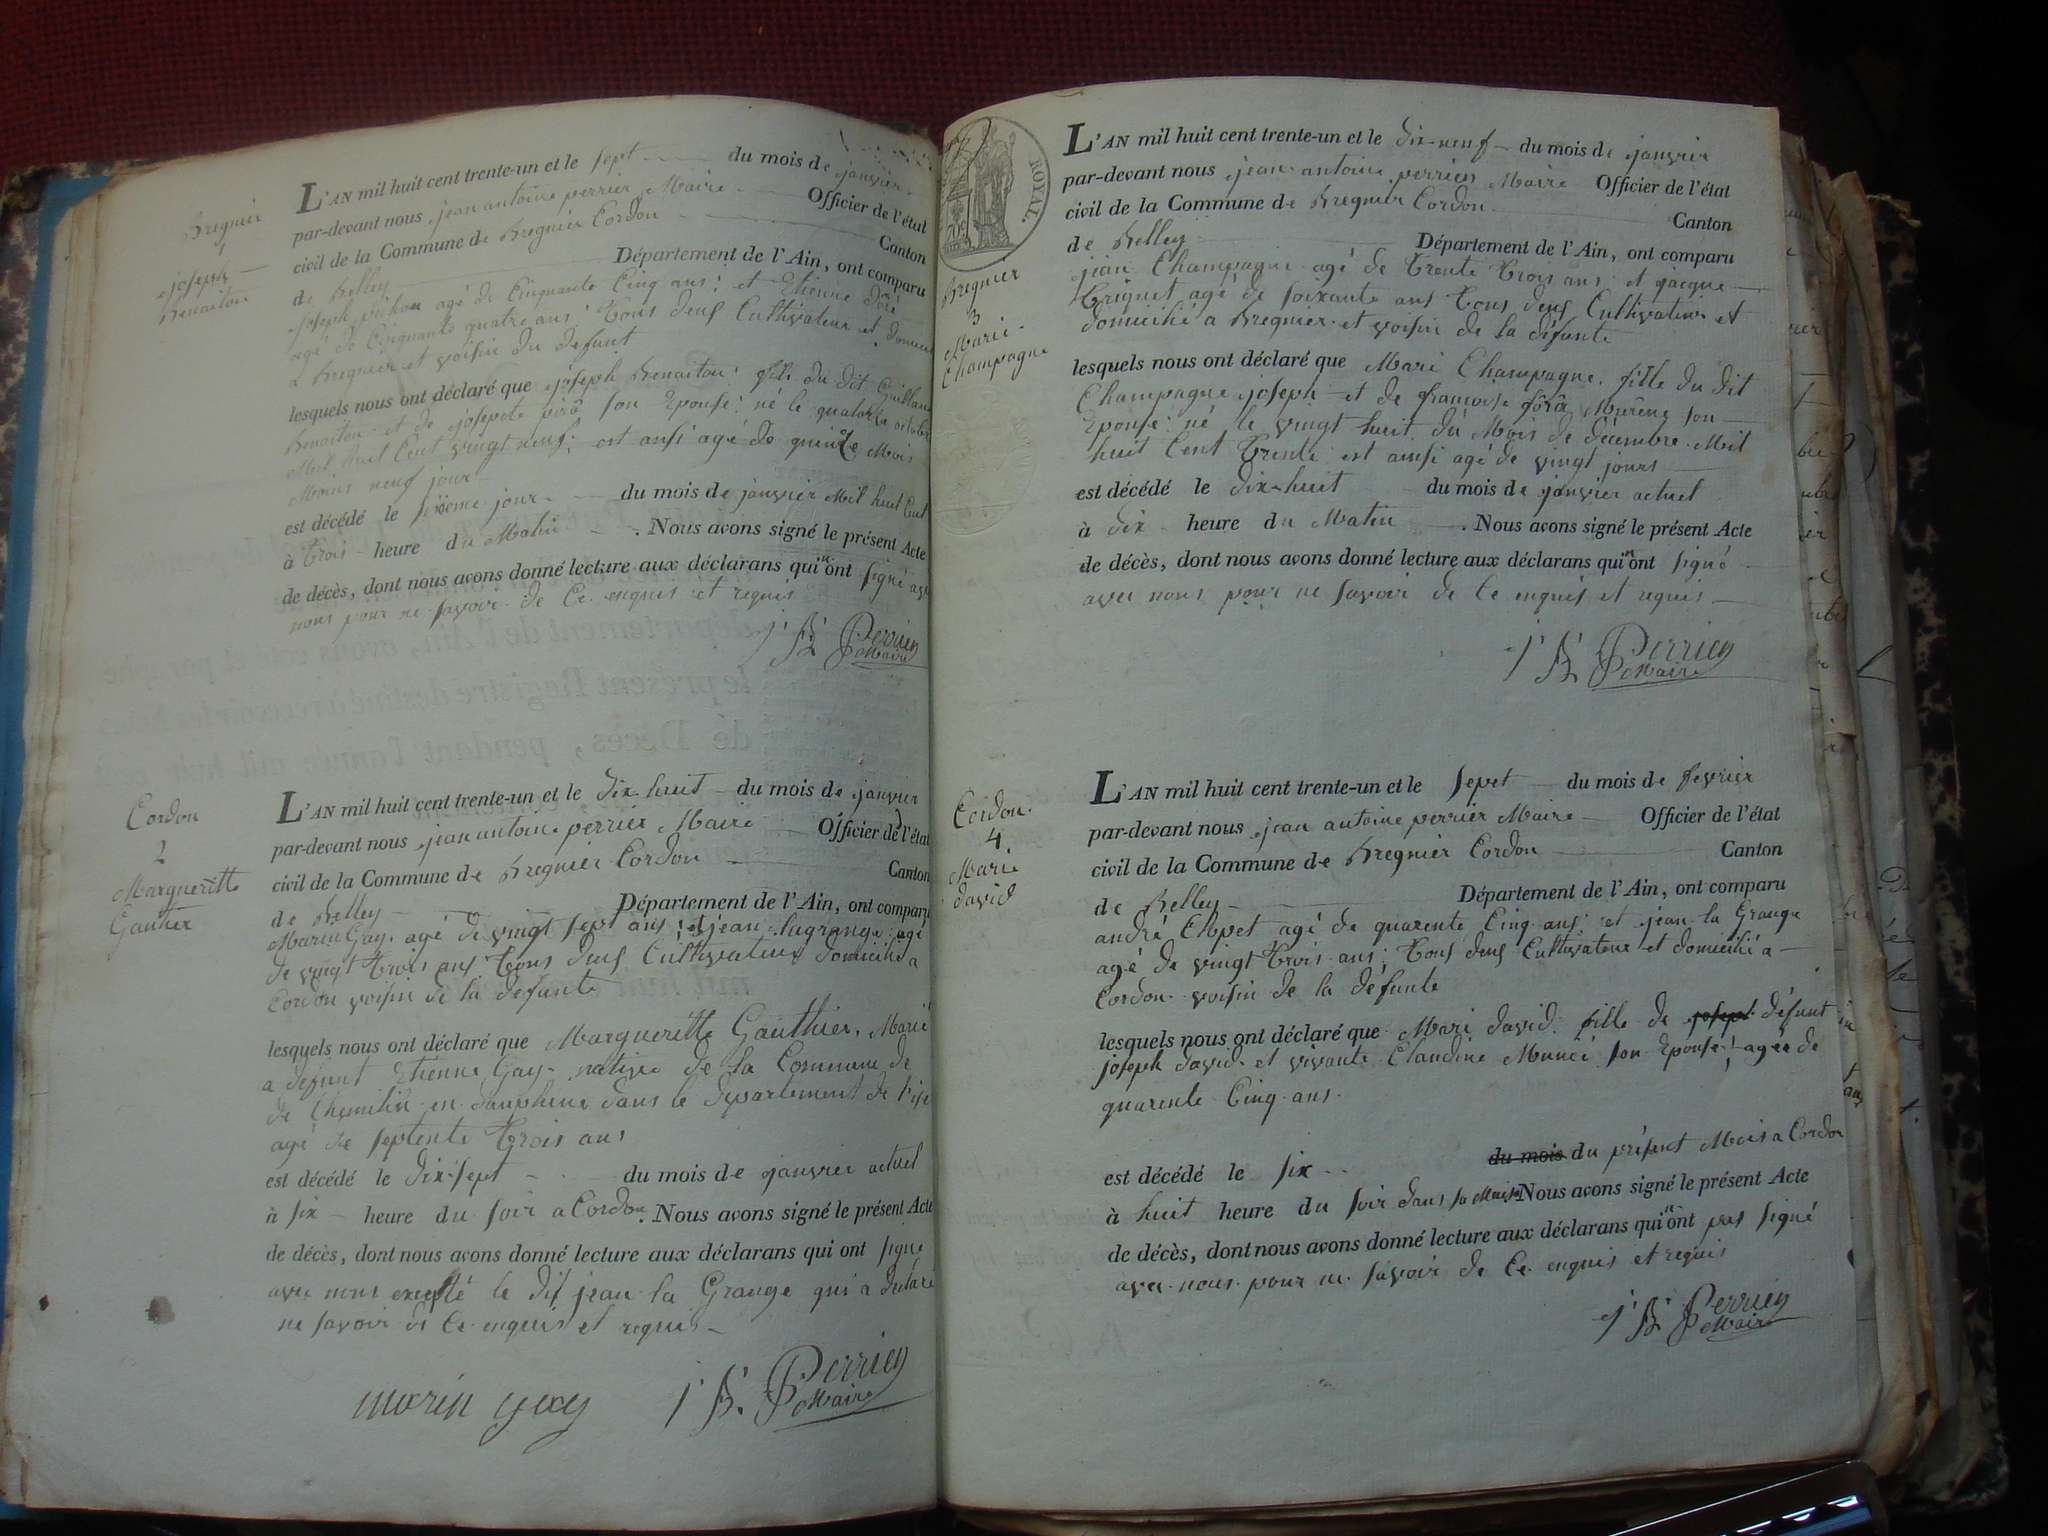 Bregnier
1
joseph
Benaiton
L'AN mil huit cent trente-un et le sept du mois de janvier
par-devant nous jean antoine perrier Maire Officier de l'état
civil de la Commune de Bregnier Cordon Canton
de Belley Département de l'Ain, ont comparu
joseph agé de Cinquante Cinq ans; et Etienne
agé de Cinquante quatre ans Tous deus Cultivateur et
a Bregnier et voisin du defunt
lesquels nous ont déclaré que joseph Benaiton fils du dit
Benaiton et de josepete son Epouse: né le quatorze octobre
Mil huit Cent vingt neuf; est ansi agé de quinze Mois
Moins neuf jour
est décédé le sixieme jour du mois de janvier Mil huit Cent
à trois heure du Matin . Nous avons signé le présent Acte
de décès, dont nous avons donné lecture aux déclarans qui n'ont signé avec
nous pour ne savoir de Ce enquis et requis
j' A Perrier
Maire
Cordon
2
Margueritte
Gautier
L'AN mil huit cent trente-un et le dix huit du mois de janvier
par-devant nous jean antoine perrier Maire Officier de l'état
civil de la Commune de Bregnier Cordon Canton
de Belley Département de l'Ain, ont comparu
Marin Gay. agé de vingt sept ans; et jean lagrange agé
de vingt trois ans Tous deus Cultivateur domicilié a
Cordon voisin de la defunte
lesquels nous ont déclaré que Margueritte Gauthier, Marié
a defunt Etienne Gay native de la Commune de
de Chemilin en dauphine dans le departement de l'ise
agé de septente trois ans
est décédé le dix-sept du mois de janvier actuel
à six heure du soir a Cordon . Nous avons signé le présent Acte
de décès, dont nous avons donné lecture aux déclarans qui ont signé
avec nous excepté le dit jean la Grange qui a declaré
ne savoir de Ce enquis et requis
morin gay j' A. Perrier
Maire
ROYAL.
Bregnier
3
Marie
Champagne
L'AN mil huit cent trente-un et le dix-neuf du mois de janvier
par-devant nous jean antoine perrier Maire Officier de l'état
civil de la Commune de Bregnier Cordon Canton
de Belley Département de l'Ain, ont comparu
jean Champagne agé de trente trois ans et jacque
Triquet agé de soixante ans Tous deus Cultivateur et
domicilié a Bregnier et voisin de la défunte
lesquels nous ont déclaré que Mari Champagne, fille du dit
Champagne joseph et de francoise son
Epouse: né le vingt huit du Mois de décembre Mil
huit Cent Trente est ainsi agé de vingt jours
est décédé le dix-huit du mois de janvier actuel
à dix heure du Matin . Nous avons signé le présent Acte
de décès, dont nous avons donné lecture aux déclarans qui n'ont signé
avec nous pour ne savoir de Ce enquis et requis
j' A Perrier
Maire
Cordon
4
Marie
david
L'AN mil huit cent trente-un et le sepet du mois de fevrier
par-devant nous jean antoine perrier Maire Officier de l'état
civil de la Commune de Bregnier Cordon Canton
de Belley Département de l'Ain, ont comparu
andré Chpet agé de quarente Cinq ans; et jean la Grange
agé de vingt trois ans; Tous deus Cultivateur et domicilié a
Cordon voisin de la défunte
lesquels nous ont déclaré que Mari david fille de joseph défunt
joseph david et vivante Claudine son Epouse; agee de
quarente Cinq ans.
est décédé le six du mois du présent Mois a Cordon
à huit heure du soir dans sa Maison Nous avons signé le présent Acte
de décès, dont nous avons donné lecture aux déclarans qui n'ont pas signé
avec nous pour ne savoir de Ce enquis et requis
j' A Perrier
Maire